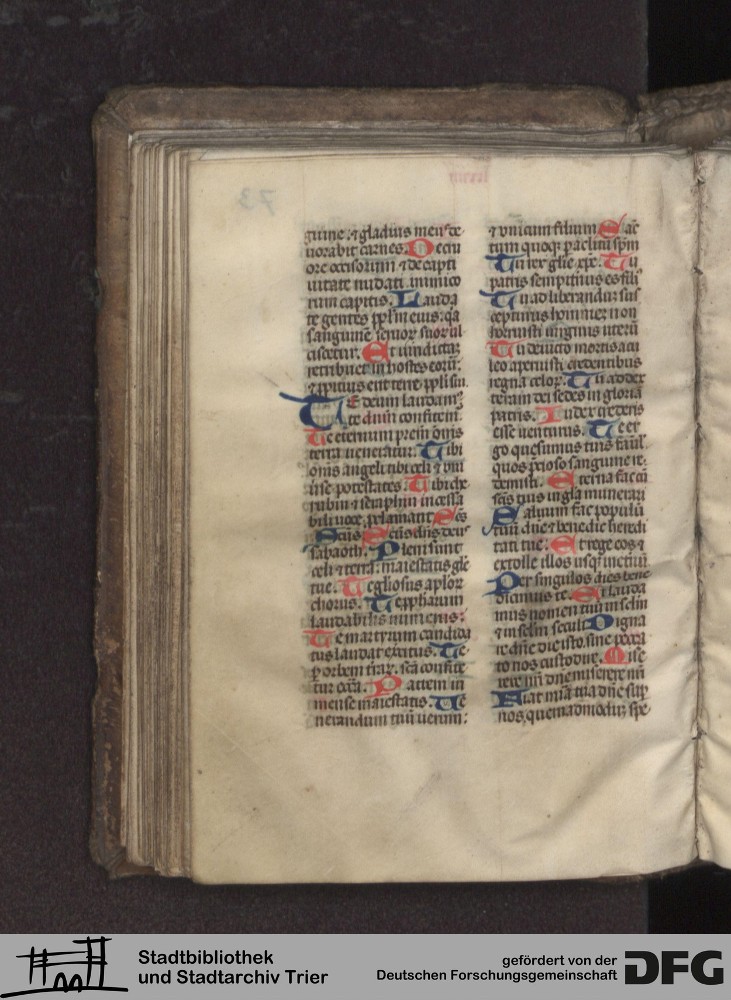 guine. & gladius meus de
uorabit carnes. De cru
ore occisorum & de capti
uitate nudati inimico
rum capitis. Lauda
te gentes pplm eius: qa
sanguinē seruor suor ul
ciscetur. Et uindictā
retribuet in hostes eorū:
& ppitius erit terre ppli sui.
Te deum laudam9
te dnm confitem
Te eternum prem omis
terra ueneratur. Tibi
oms angeli tibi celi & uni
uise potestates. Tibi che
rubin & seraphin incessa
bili uoce pclamant. Scs
Scūs Scūs dns deus
sabaoth. Pleni sunt
celi & terra: maiestatis glē
tue. Te gliosus aplor
chorus. Te pphtarum
laudabilis numerus:
Te martyrum candida
tus laudat exercitus. Te
p orbem trarz sca confite
tur eccā. Patrem in
mense maiestatis. Ue
nerandum tuū uerum:
& vnicum filium. Sāc
tum quoqz paclitū spm
Tu rex glie xpe. Tu
patris sempitnus es fili9
Tu ad liberandū sus
cepturus hominē non
horruisti uirginis uterū
Tu deuicto mortis acu
leo aperuisti credentibus
regna celor. Tu ad dex
teram dei sedes in gloria
patris. Iudex crederis
esse uenturus. Te er
go quesumus tuis famul'
quos pcioso sanguine re
demisti. Eterna fac cū
scīs tuis in gla munerari
Saluum fac populū
tuū dne & benedic heredi
tati tue. Et rege eos &
extolle illos usqz in etnū
Per singulos dies bene
dicimus te. Et lauda
mus nomen tuū in sclm
& in sclm secli. Digna
re dne die isto sine pecca
to nos custodire. Mise
rere nri dne miserere nri
Fiat mia tua dne sup
nos, quemadmodū spe
73
Stadtbibliothek
und Stadtarchiv Trier
gefördert von der
Deutschen Forschungsgemeinschaft
DFG